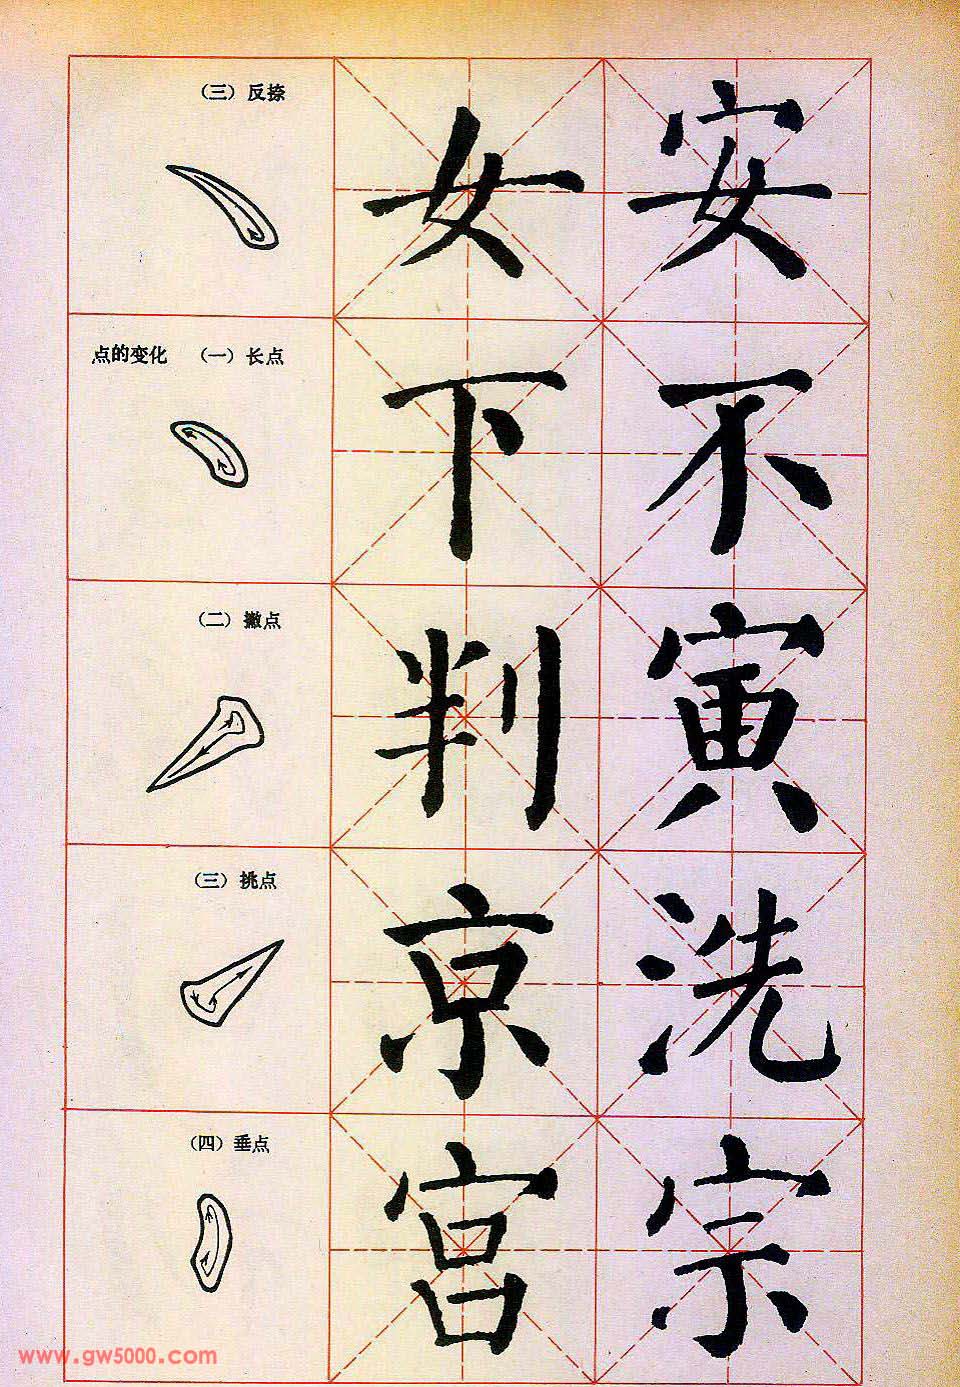 (三) 反捺
女 安
点的变化 (一) 长点
下 不
(二) 撇点
判 寅
(三) 挑点
京 洗
(四) 垂点
宫 宗
www.gw5000.com